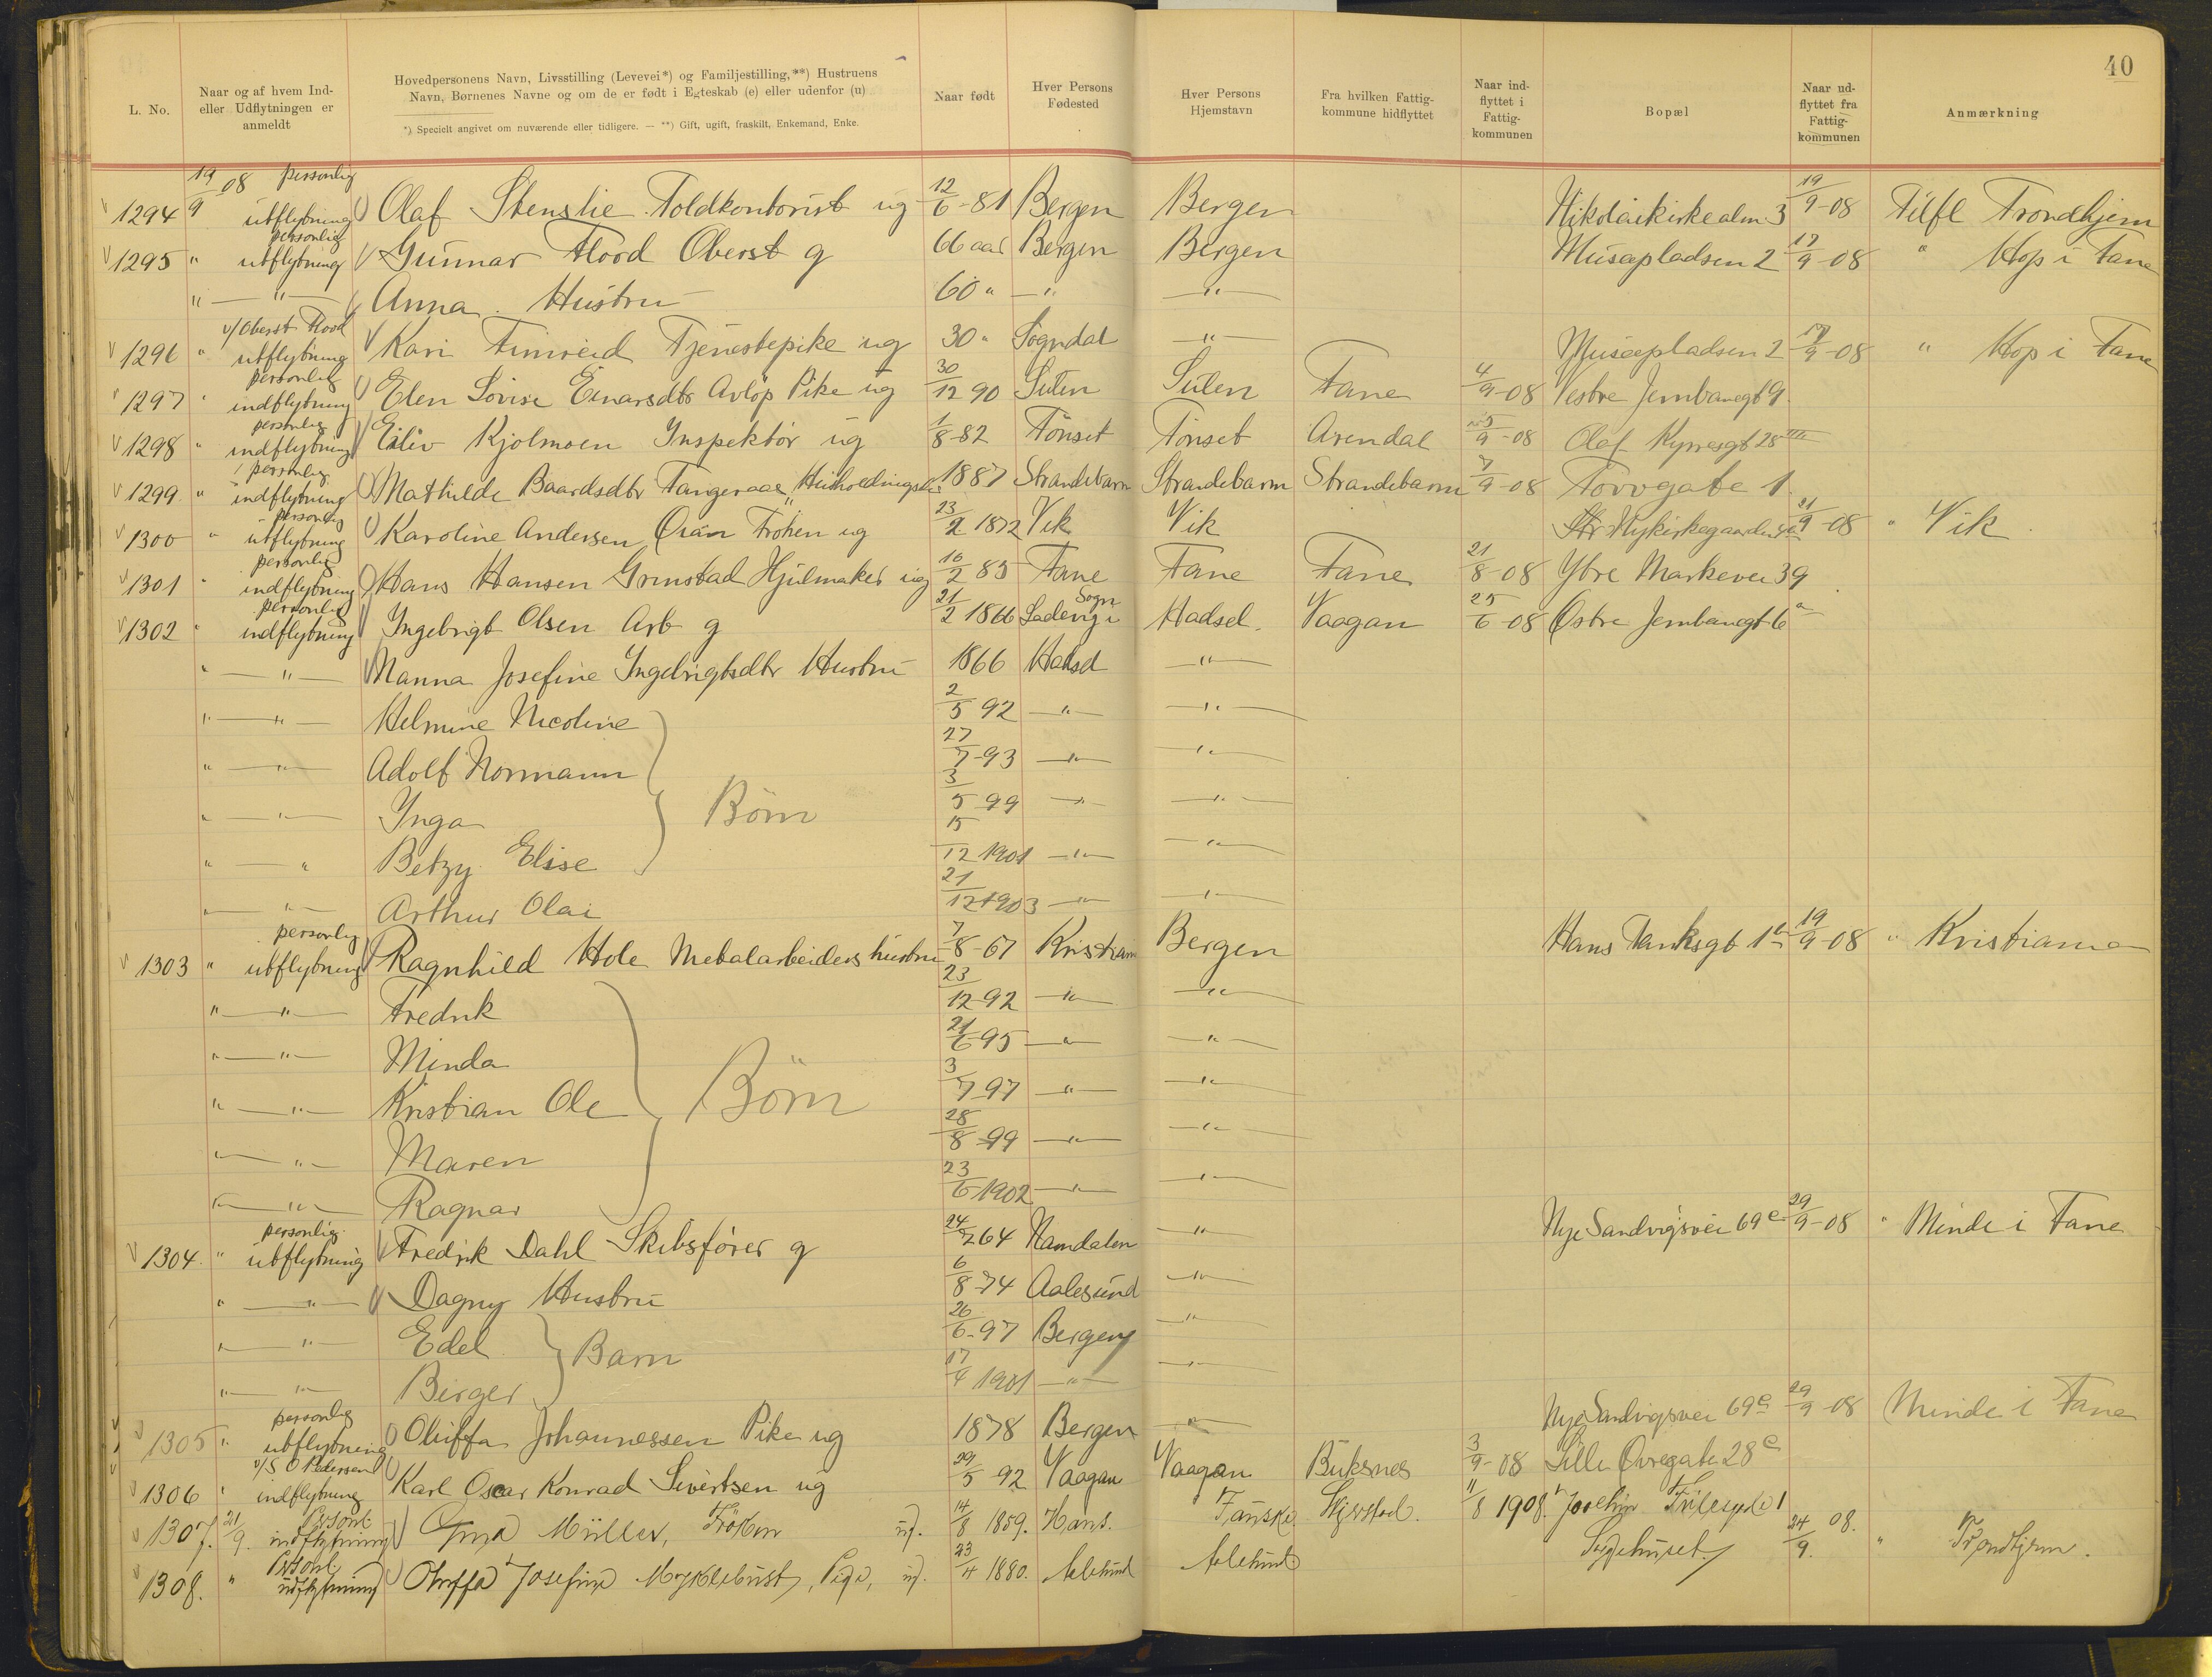 40
L. No. Naar og af hvem Ind- eller Udflytningen er anmeldt Hovedpersonens Navn, Livsstilling (Levevei*) og Familjestilling,**) Hustruens Navn, Børnenes Navne og om de er født i Egteskab (e) eller udenfor (u) Naar født Hver Persons Fødested Hver Persons Hjemstavn Fra hvilken Fattig-kommune hidflyttet Naar ind-flyttet i Fattig-kommunen Bopæl Naar ud-flyttet fra Fattig-kommunen Anmærkning
*) Specielt angivet om nuværende eller tidligere. — **) Gift, ugift, fraskilt, Enkemand, Enke.
1294 19/9 08 personlig utflytning Olaf Stenslie Toldkontorist ug 12/6-81 Bergen Bergen Nikolaikirkealm 3 19/9-08 Tilfl Trondhjem
1295 " personlig utflytning Gunnar Flood Oberst g 66 aar Bergen Bergen Musæpladsen 2 17/9-08 " Hop i Fane
" — " — Anna Hustru 60 " — " — " —
1296 " v/Oberst Flood utflytning Kari Timreid Tjenestepike ug 30 " Sogndal — " — Musæpladsen 2 17/9-08 " Hop i Fane
1297 " personlig indflytning Elen Lovise Einarsdtr Avløp Pike ug 30/12 90 Sulen Sulen Fane 4/9-08 Vestre Jernbanegt 9
1298 " personlig indflytning Eiliv Kjolmoen Inspektør ug 1/8-82 Tönset Tönset Arendal 5/9-08 Olaf Kyrresgt 28 III
1299 " personlig indflytning Mathilde Baardsdtr Tangeraas, Husholdingsk 1887 Strandebarm Strandebarm Strandebarm 7/9-08 Torvgate 1
1300 " personlig utflytning Karoline Andersen Frøken ug 23/2 1872 Vik Vik Nykirkegaarden 21/9-08 " Vik
1301 " personlig indflytning Hans Hansen Grimstad Hjulmaker ug 16/2 85 Fane Fane Fane 21/8-08 Ytre Markevei 39
1302 " personlig indflytning Ingebrigt Olsen Arb g 21/2 1866 Ladevig i Sogn Hadsel Vaagan 25/6-08 Østre Jernbanegt 6 a
" — " — Nanna Josefine Ingebrigtsdtr Hustru 1866 Hadsel — " —
" — " — Helmine Nicoline 2/5 92 — " — — " —
" — " — Adolf Normann 27/7-93 — " — — " —
" — " — Inga Börn 3/5 99 — " — — " —
" — " Betzy Elise 15/12 1901 — " — — " —
" — " — Arthur Olai 21/12 1903 — " — — " —
1303 " personlig utflytning Ragnhild Hole Metalarbeiders hustru 7/8-67 Kristiania Bergen Hans Tanksgt 1 a 19/9-08 " Kristiania
" — " — Fredrik 23/12-92 — " — — " —
" — " — Minda 21/6-95 — " — — " —
" — " — Kristian Ole Börn 3/7 97 — " — — " —
" — " — Maren 28/8-99 — " — — " —
" — " — Ragnar 23/6 1902 — " — — " —
1304 " personlig utflytning Fredrik Dahl Skibsfører g 24/7 64 Namdalen — " — Nye Sandvigsvei 69 e 29/9-08 " Minde i Fane
" — " — Dagny Hustru 6/8-74 Aalesund — " —
" — " — Edel Barn 26/6-97 Bergen — " —
" — " — Birger 17/4 1901 — " — — " —
1305 " personlig utflytning Oluffa Johannessen Pike ug 1878 Bergen — " — Nye Sandvigsvei 69 e 29/9-08 Minde i Fane
1306 " v/S O Pedersen indflytning Karl Oscar Konrad Sivertsen ug 29/5-92 Vaagan Vaagan Buksnes 3/9-08 Lille Øvregate 28 e
1307. 21/9. Personl indflytning Müller, Fröken ug. 14/8 1859. Fauske 11/8 1908. 1
1308. " Personl udflytning Oluffa Josefine Myklebust, Pige, ug. 23/4 1880. Aalesund Aalesund Sygehuset 24/9. 08. " Trondhjem.